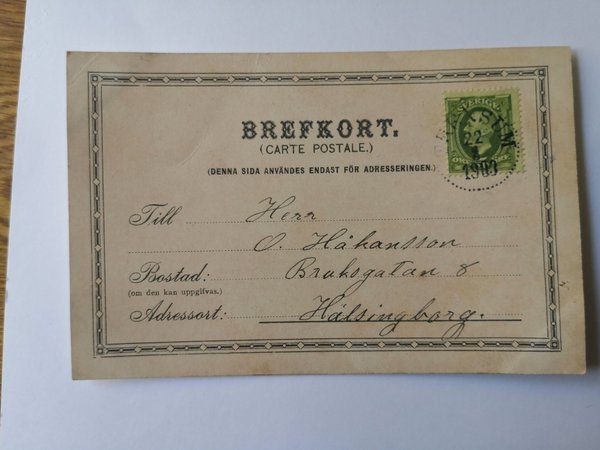 BREFKORT.
(CARTE POSTALE.)
(DENNA SIDA ANVÄNDES ENDAST FÖR ADRESSERINGEN.)
SVERIGE
22
1903
Till Herr
O. Håkansson
Bostad: Bruksgatan 8
(om den kan uppgifvas.)
Adressort: Hälsingborg.